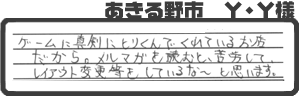 あきる野市　Y・Y様
ゲームに真剣にとりくんでくれているお店
だから。メルマガを読むと、苦労して、
レイアウト変更等をしているな～と思います。